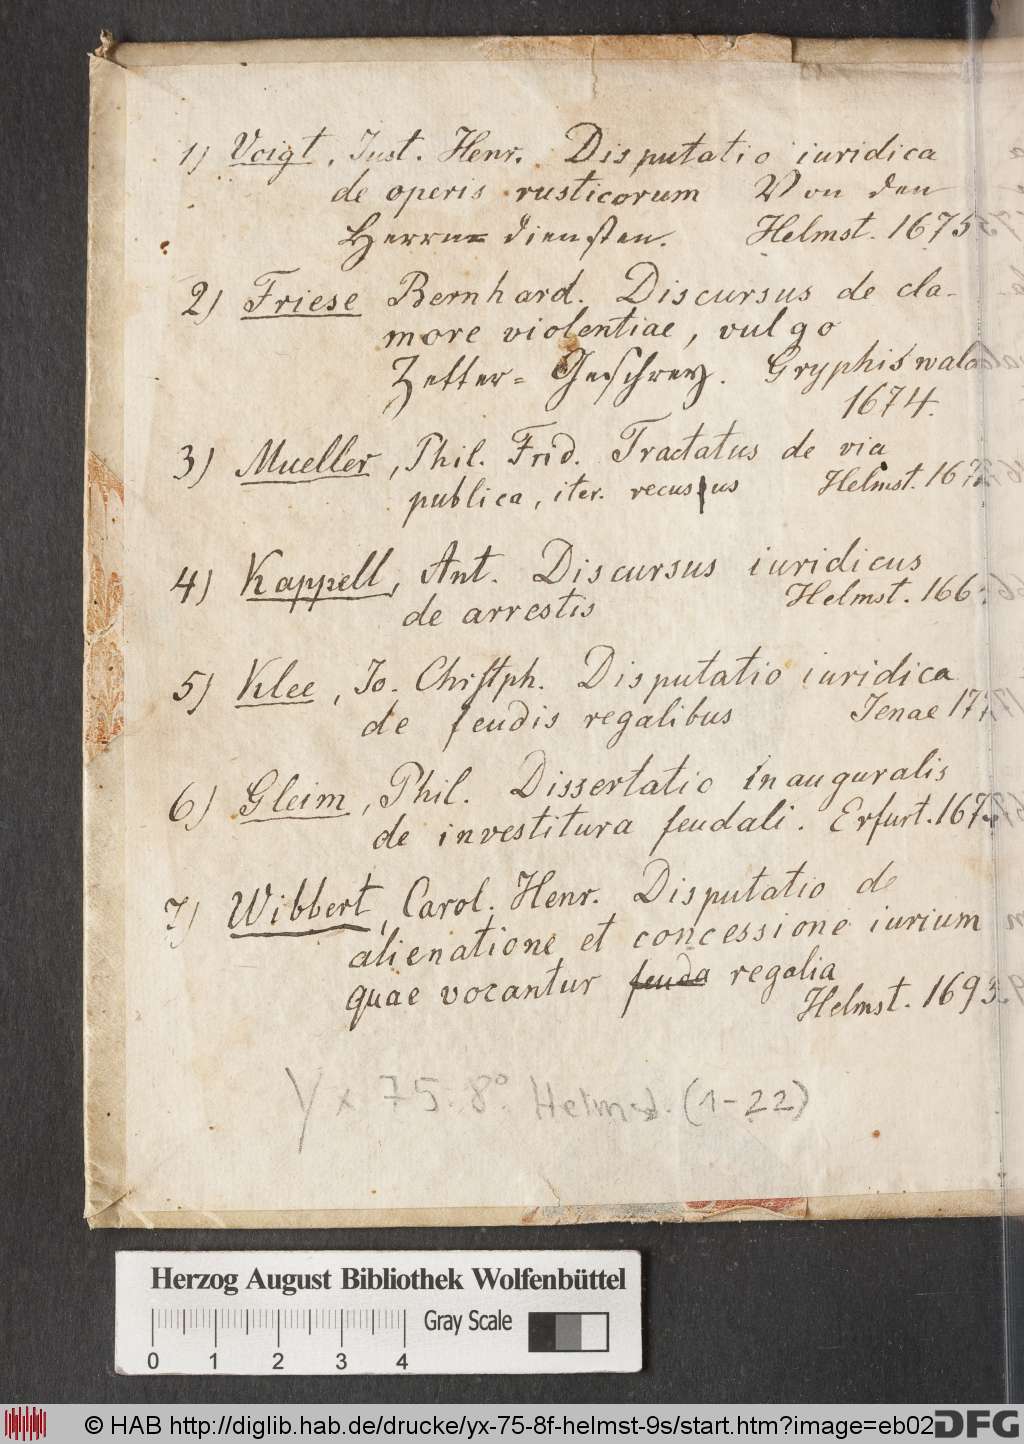 1) Voigt, Just. Henr. Disputatio iuridica
de operis rusticorum Von den
Herrn= diensten. Helmst. 1675
2) Friese Bernhard. Discursus de cla-
more violentiae, vulgo
Zetter= Geschrey. Gryphiswald
1674.
3) Mueller, Phil. Frid. Tractatus de via
publica, iter. recusus Helmst.
4) Kappell, Ant. Discursus iuridicus
de arrestis Helmst.
5) Klee, Jo. Christph. Disputatio iuridica
de feudis regalibus Jenae
6) Gleim, Phil. Dissertatio inauguralis
de investitura feudali. Erfurt.
7) Wibbert, Carol. Henr. Disputatio de
alienatione et concessione iurium
quae vocantur feuda regalia
Helmst. 1693
Yx 75. 8° Helmst. (1-22)
Herzog August Bibliothek Wolfenbüttel
Gray Scale
0 1 2 3 4
© HAB http://diglib.hab.de/drucke/yx-75-8f-helmst-9s/start.htm?image=eb02
DFG